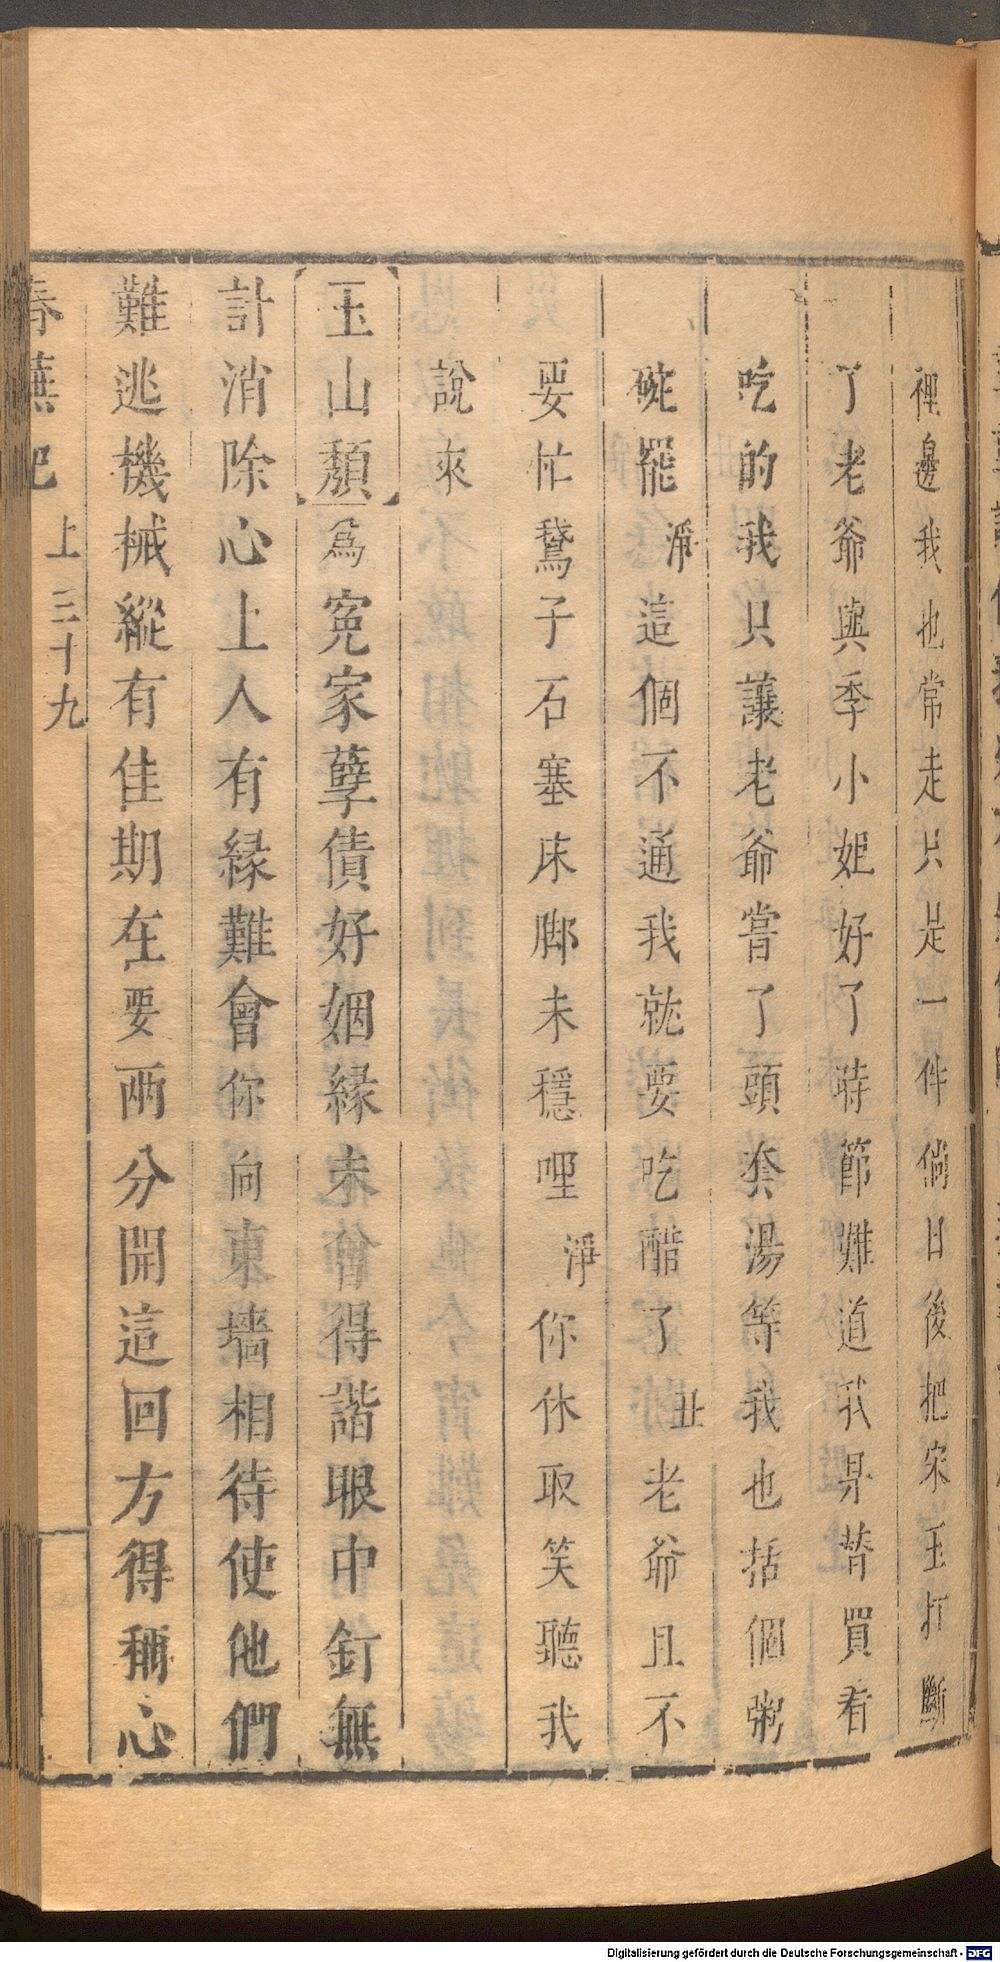 裡邊我也常走只是一件倘日後把宋玉打斷
了老爺與季小姐好了時節難道我是替買看
吃的我只讓老爺嘗了頭奏湯等我也括個粥
碗罷淨這個不通我就要吃醋了丑老爺且不
要忙鵞子石塞床脚未穩哩淨你休取笑聽我
說來
玉山頽爲寃家孽債好姻緣未曾得諧眼中釘無
計消除心上人有緣難會你向東墻相待使他們
難逃機械縱有佳期在要兩分開這回方得稱心
春蕪記 上 三十九
Digitalisierung gefördert durch die Deutsche Forschungsgemeinschaft - DFG